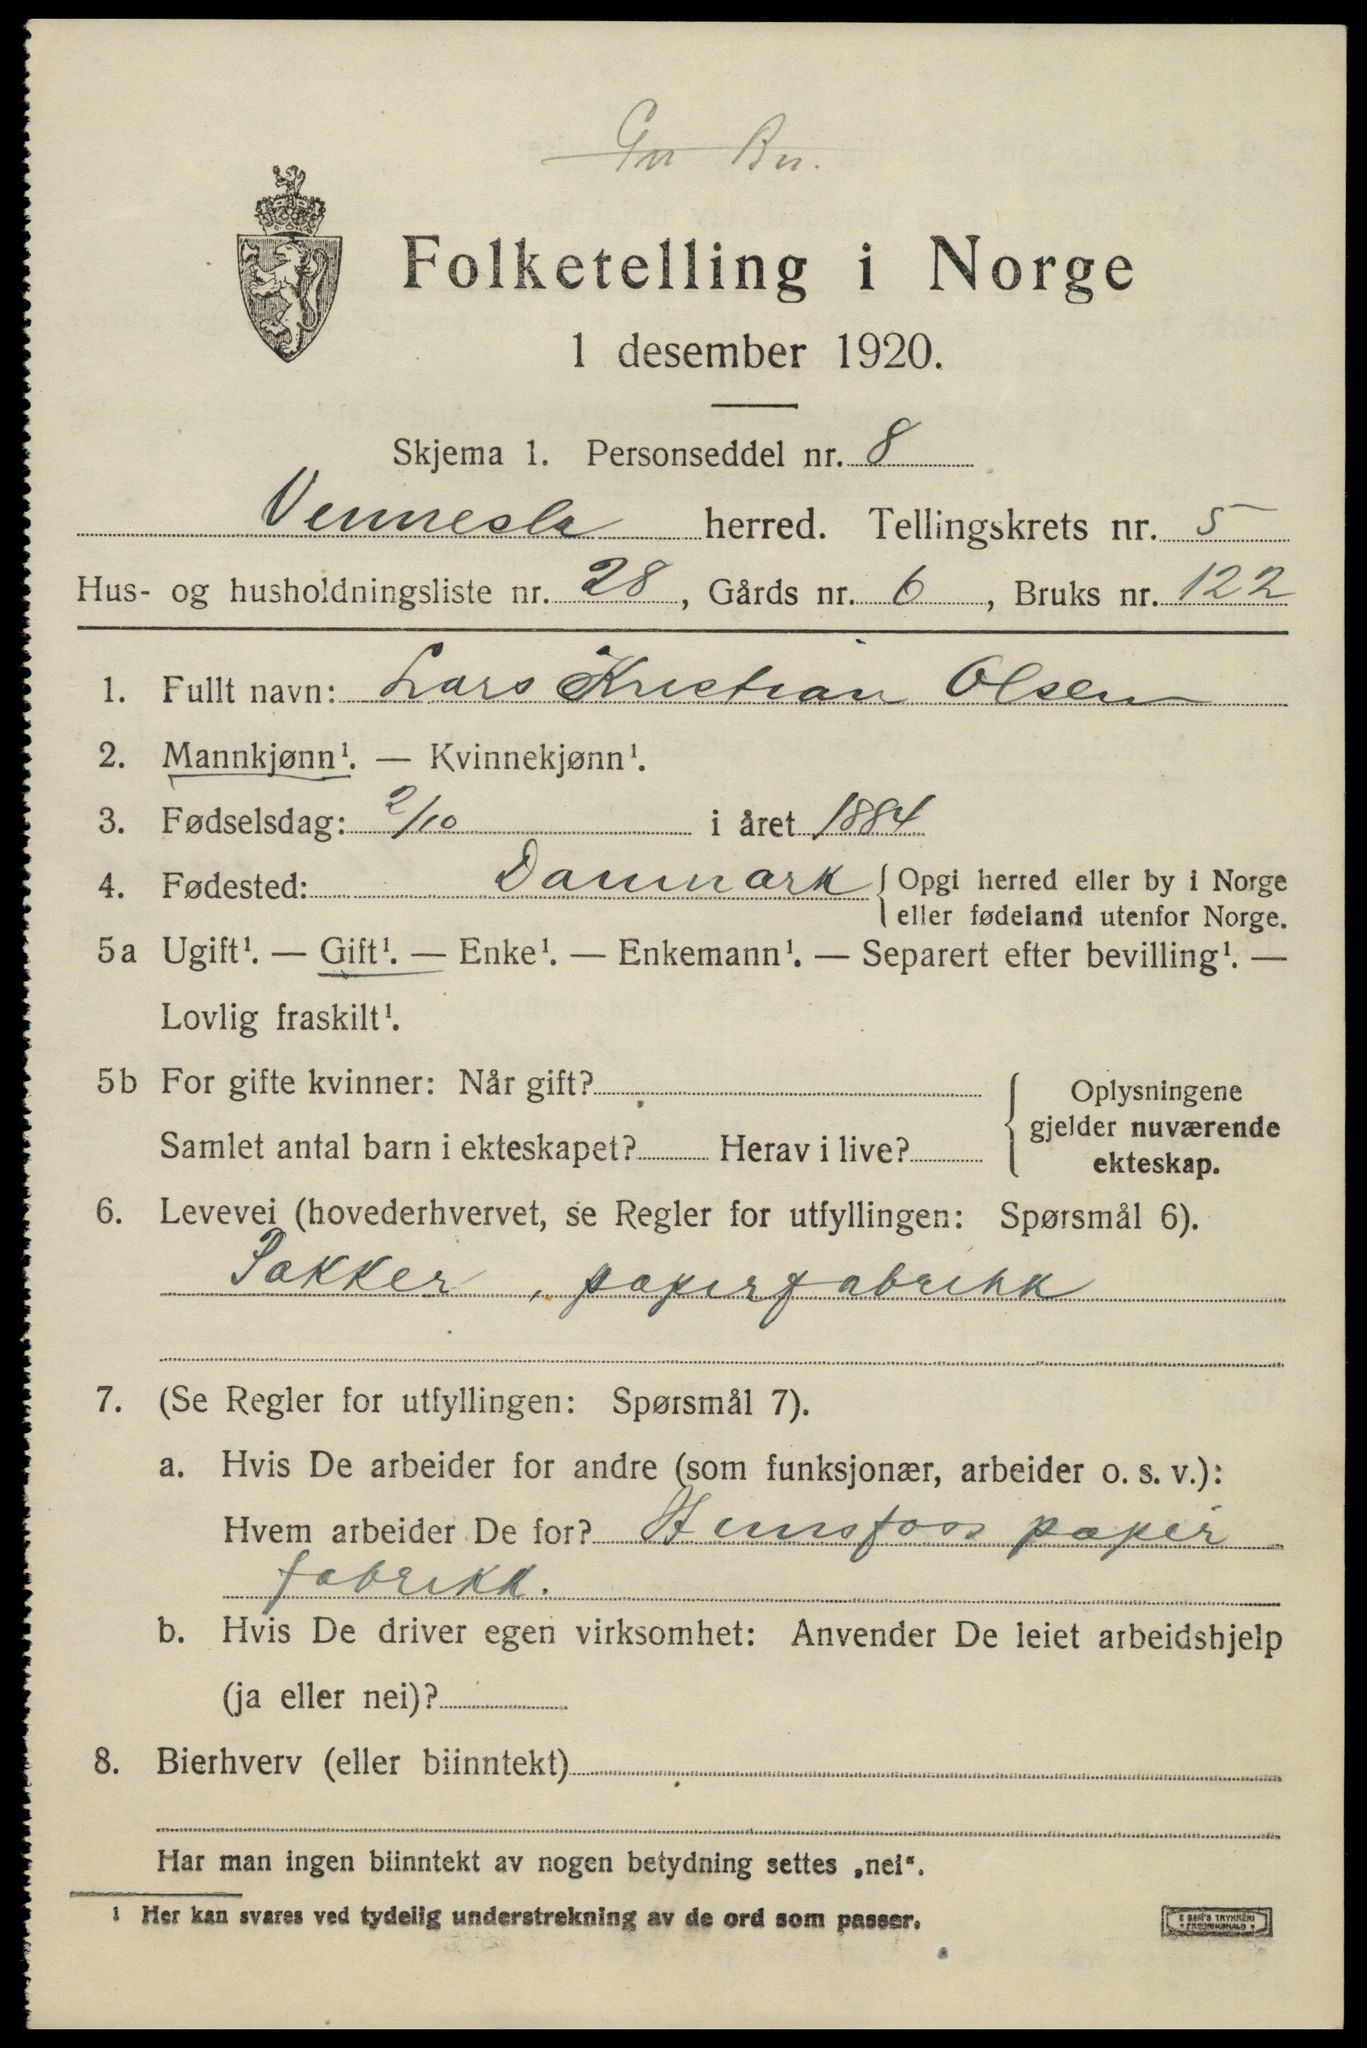 Gn Bn.
Folketelling i Norge
1 desember 1920.
Skjema 1. Personseddel nr. 8
Vennesla herred. Tellingskrets nr. 5
Hus- og husholdningsliste nr. 28, Gårds nr. 6, Bruks nr. 122
1. Fullt navn: Lars Kristian Olsen
2. Mannkjønn¹. — Kvinnekjønn¹.
3. Fødselsdag: 2/10 i året 1884
4. Fødested: Danmark { Opgi herred eller by i Norge
eller fødeland utenfor Norge.
5a Ugift¹. — Gift¹. — Enke¹. — Enkemann¹. — Separert efter bevilling¹. —
Lovlig fraskilt¹.
5b For gifte kvinner: Når gift?
Samlet antal barn i ekteskapet? Herav i live?
Oplysningene
gjelder nuværende
ekteskap.
6. Levevei (hovederhvervet, se Regler for utfyllingen: Spørsmål 6).
Pakker, papirfabrikk
7. (Se Regler for utfyllingen: Spørsmål 7).
a. Hvis De arbeider for andre (som funksjonær, arbeider o. s. v.):
Hvem arbeider De for? Hunsfoss papir
fabrikk.
b. Hvis De driver egen virksomhet: Anvender De leiet arbeidshjelp
(ja eller nei)?
8. Bierhverv (eller biinntekt)
Har man ingen biinntekt av nogen betydning settes „nei“.
1 Her kan svares ved tydelig understrekning av de ord som passer.